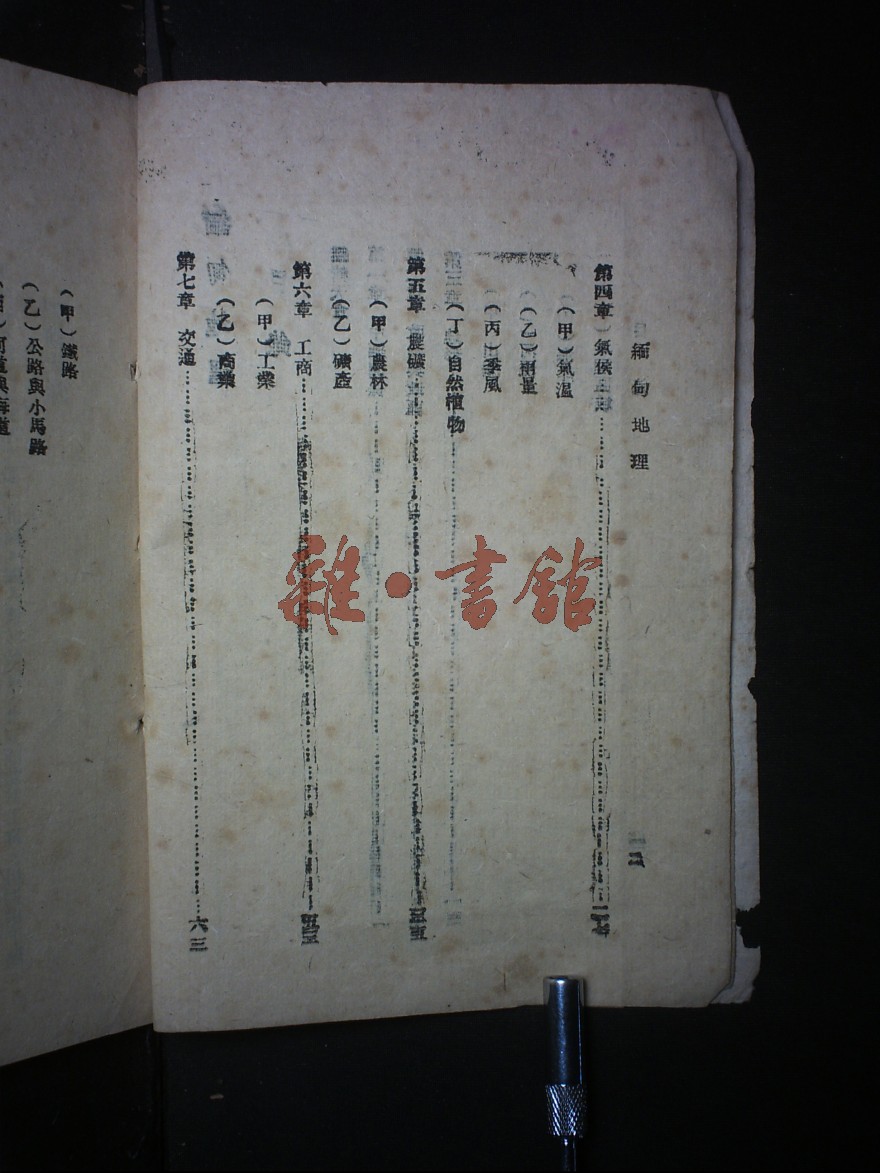 緬甸地理
第四章 氣候……
(甲)氣溫
(乙)雨量
(丙)季風
(丁)自然植物
第五章 農礦……
(甲)農林
(乙)礦產
第六章 工商……
(甲)工業
(乙)商業
第七章 交通……六三
(甲)鐵路
(乙)公路與小馬路
雜·書館